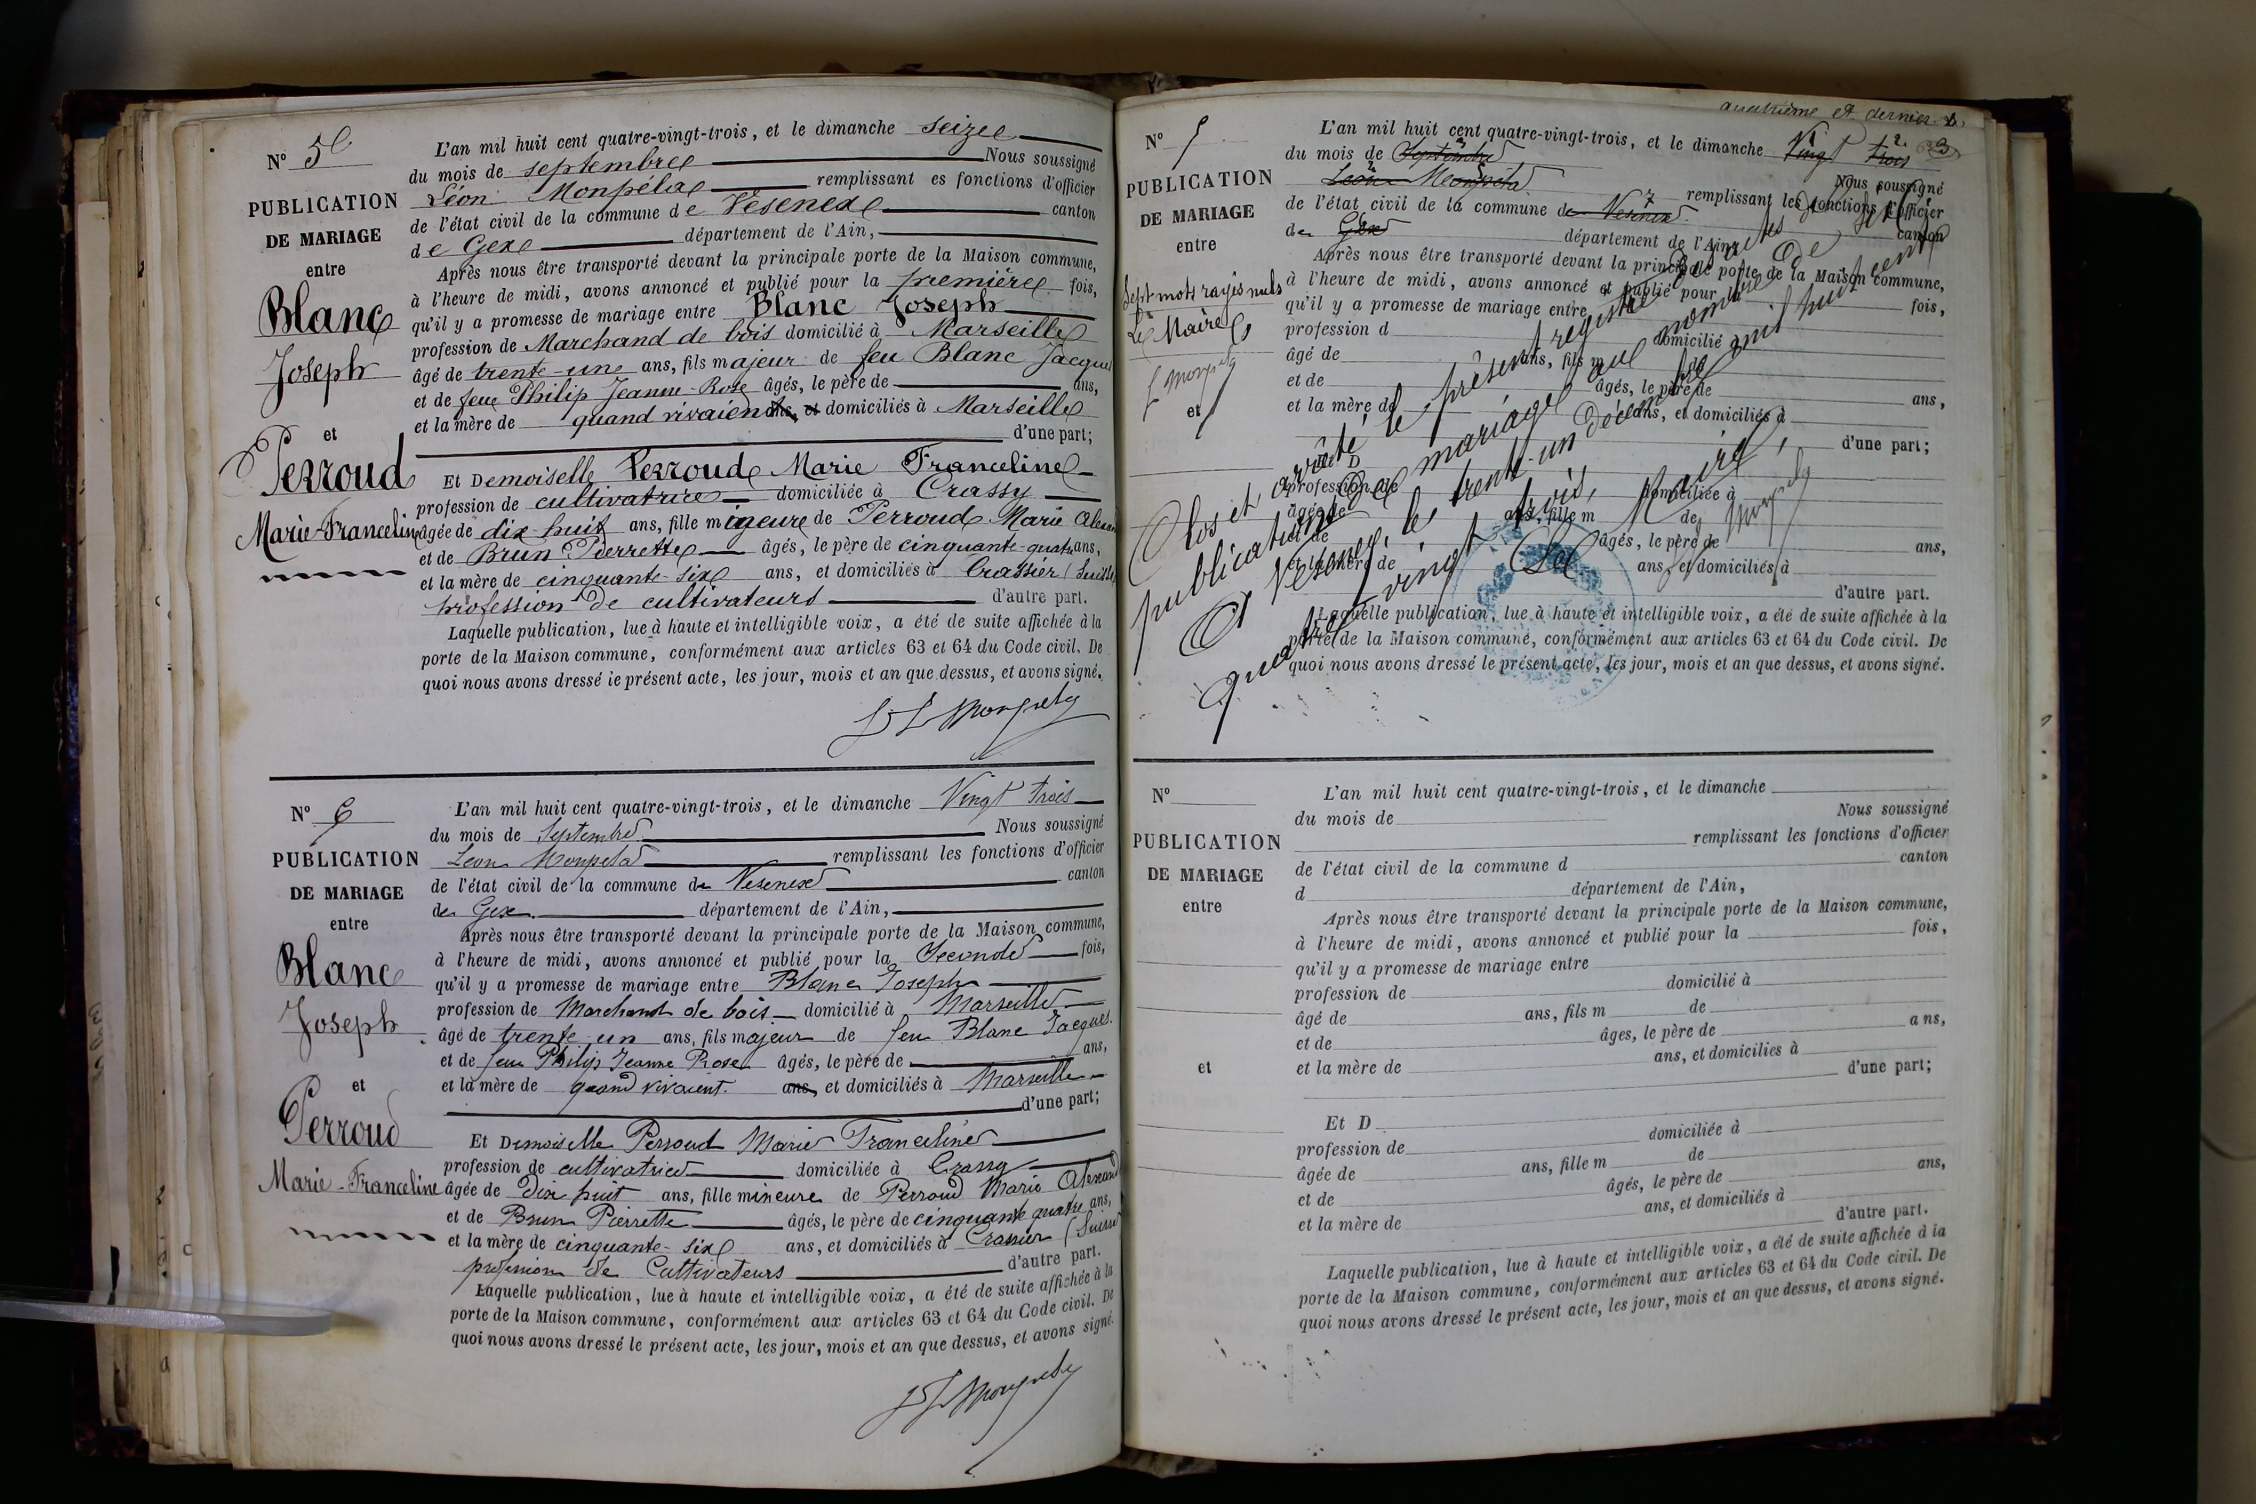 N° 5
PUBLICATION
DE MARIAGE
entre
Blanc
Joseph
et
Perroud
Marie-Franceline
L'an mil huit cent quatre-vingt-trois, et le dimanche seize
du mois de septembre Nous soussigné
Léon Monpéla remplissant es fonctions d'officier
de l'état civil de la commune de Vésenex canton
de Gex département de l'Ain,
Après nous être transporté devant la principale porte de la Maison commune,
à l'heure de midi, avons annoncé et publié pour la première fois,
qu'il y a promesse de mariage entre Blanc Joseph
profession de Marchand de bois domicilié à Marseille
âgé de trente-un ans, fils majeur de feu Blanc Jacques
et de feue Philip Jeanne-Rose âgés, le père de ans,
et la mère de quand vivaient ans, et domiciliés à Marseille
d'une part;
Et Demoiselle Perroud Marie Franceline
profession de cultivatrice domiciliée à Crassy
âgée de dix-huit ans, fille mineure de Perroud Marie
et de Brun Pierrette âgés, le père de cinquante-quatre ans,
et la mère de cinquante-six ans, et domiciliés à Crassier (Suisse
profession de cultivateurs d'autre part.
Laquelle publication, lue à haute et intelligible voix, a été de suite affichée à la
porte de la Maison commune, conformément aux articles 63 et 64 du Code civil. De
quoi nous avons dressé le présent acte, les jour, mois et an que dessus, et avons signé.
N° 6
PUBLICATION
DE MARIAGE
entre
Blanc
Joseph
et
Perroud
Marie-Franceline
L'an mil huit cent quatre-vingt-trois, et le dimanche Vingt trois
du mois de Septembre Nous soussigné
Léon Monpela remplissant les fonctions d'officier
de l'état civil de la commune de Vesenex canton
de Gex département de l'Ain,
Après nous être transporté devant la principale porte de la Maison commune,
à l'heure de midi, avons annoncé et publié pour la Seconde fois,
qu'il y a promesse de mariage entre Blanc Joseph
profession de Marchand de bois domicilié à Marseille
âgé de trente un ans, fils majeur de feu Blanc Jacques
et de feue Philip Jeanne Rose âgés, le père de ans,
et la mère de quand vivaient ans, et domiciliés à Marseille
d'une part;
Et Demoiselle Perroud Marie Franceline
profession de cultivatrice domiciliée à Crassy
âgée de Dix huit ans, fille mineure de Perroud Marie
et de Brun Pierrette âgés, le père de cinquante quatre ans,
et la mère de cinquante-six ans, et domiciliés à Crassier (Suisse
profession de Cultivateurs d'autre part.
Laquelle publication, lue à haute et intelligible voix, a été de suite affichée à la
porte de la Maison commune, conformément aux articles 63 et 64 du Code civil. De
quoi nous avons dressé le présent acte, les jour, mois et an que dessus, et avons signé.
quatrième et dernier
N° 7
PUBLICATION
DE MARIAGE
entre
Sept mots rayés nuls
Le Maire
et
L'an mil huit cent quatre-vingt-trois, et le dimanche Vingt trois
du mois de Septembre Nous soussigné
Léon Monpela remplissant les fonctions d'officier
de l'état civil de la commune de Vesenex canton
de Gex département de l'Ain,
Après nous être transporté devant la principale porte de la Maison commune,
à l'heure de midi, avons annoncé et publié pour la fois,
qu'il y a promesse de mariage entre
profession d domicilié à
âgé de ans, fils m de
et de âgés, le père de ans,
et la mère de ans, et domiciliés à
d'une part;
Et D
profession de domiciliée à
âgée de ans, fille m de
et de âgés, le père de ans,
et la mère de ans, et domiciliés à
d'autre part.
Laquelle publication, lue à haute et intelligible voix, a été de suite affichée à la
porte de la Maison commune, conformément aux articles 63 et 64 du Code civil. De
quoi nous avons dressé le présent acte, les jour, mois et an que dessus, et avons signé.
Clos et arrêté le présent registre des actes de
publications de mariage au nombre de
A Vesenex, le trente-un décembre mil huit cent
quatre vingt trois,
Le Maire,
N°
PUBLICATION
DE MARIAGE
entre
et
L'an mil huit cent quatre-vingt-trois, et le dimanche
du mois de Nous soussigné
remplissant les fonctions d'officier
de l'état civil de la commune d canton
d département de l'Ain,
Après nous être transporté devant la principale porte de la Maison commune,
à l'heure de midi, avons annoncé et publié pour la fois,
qu'il y a promesse de mariage entre
profession de domicilié à
âgé de ans, fils m de
et de âges, le père de ans,
et la mère de ans, et domiciliés à
d'une part;
Et D
profession de domiciliée à
âgée de ans, fille m de
et de âgés, le père de ans,
et la mère de ans, et domiciliés à
d'autre part.
Laquelle publication, lue à haute et intelligible voix, a été de suite affichée à la
porte de la Maison commune, conformément aux articles 63 et 64 du Code civil. De
quoi nous avons dressé le présent acte, les jour, mois et an que dessus, et avons signé.